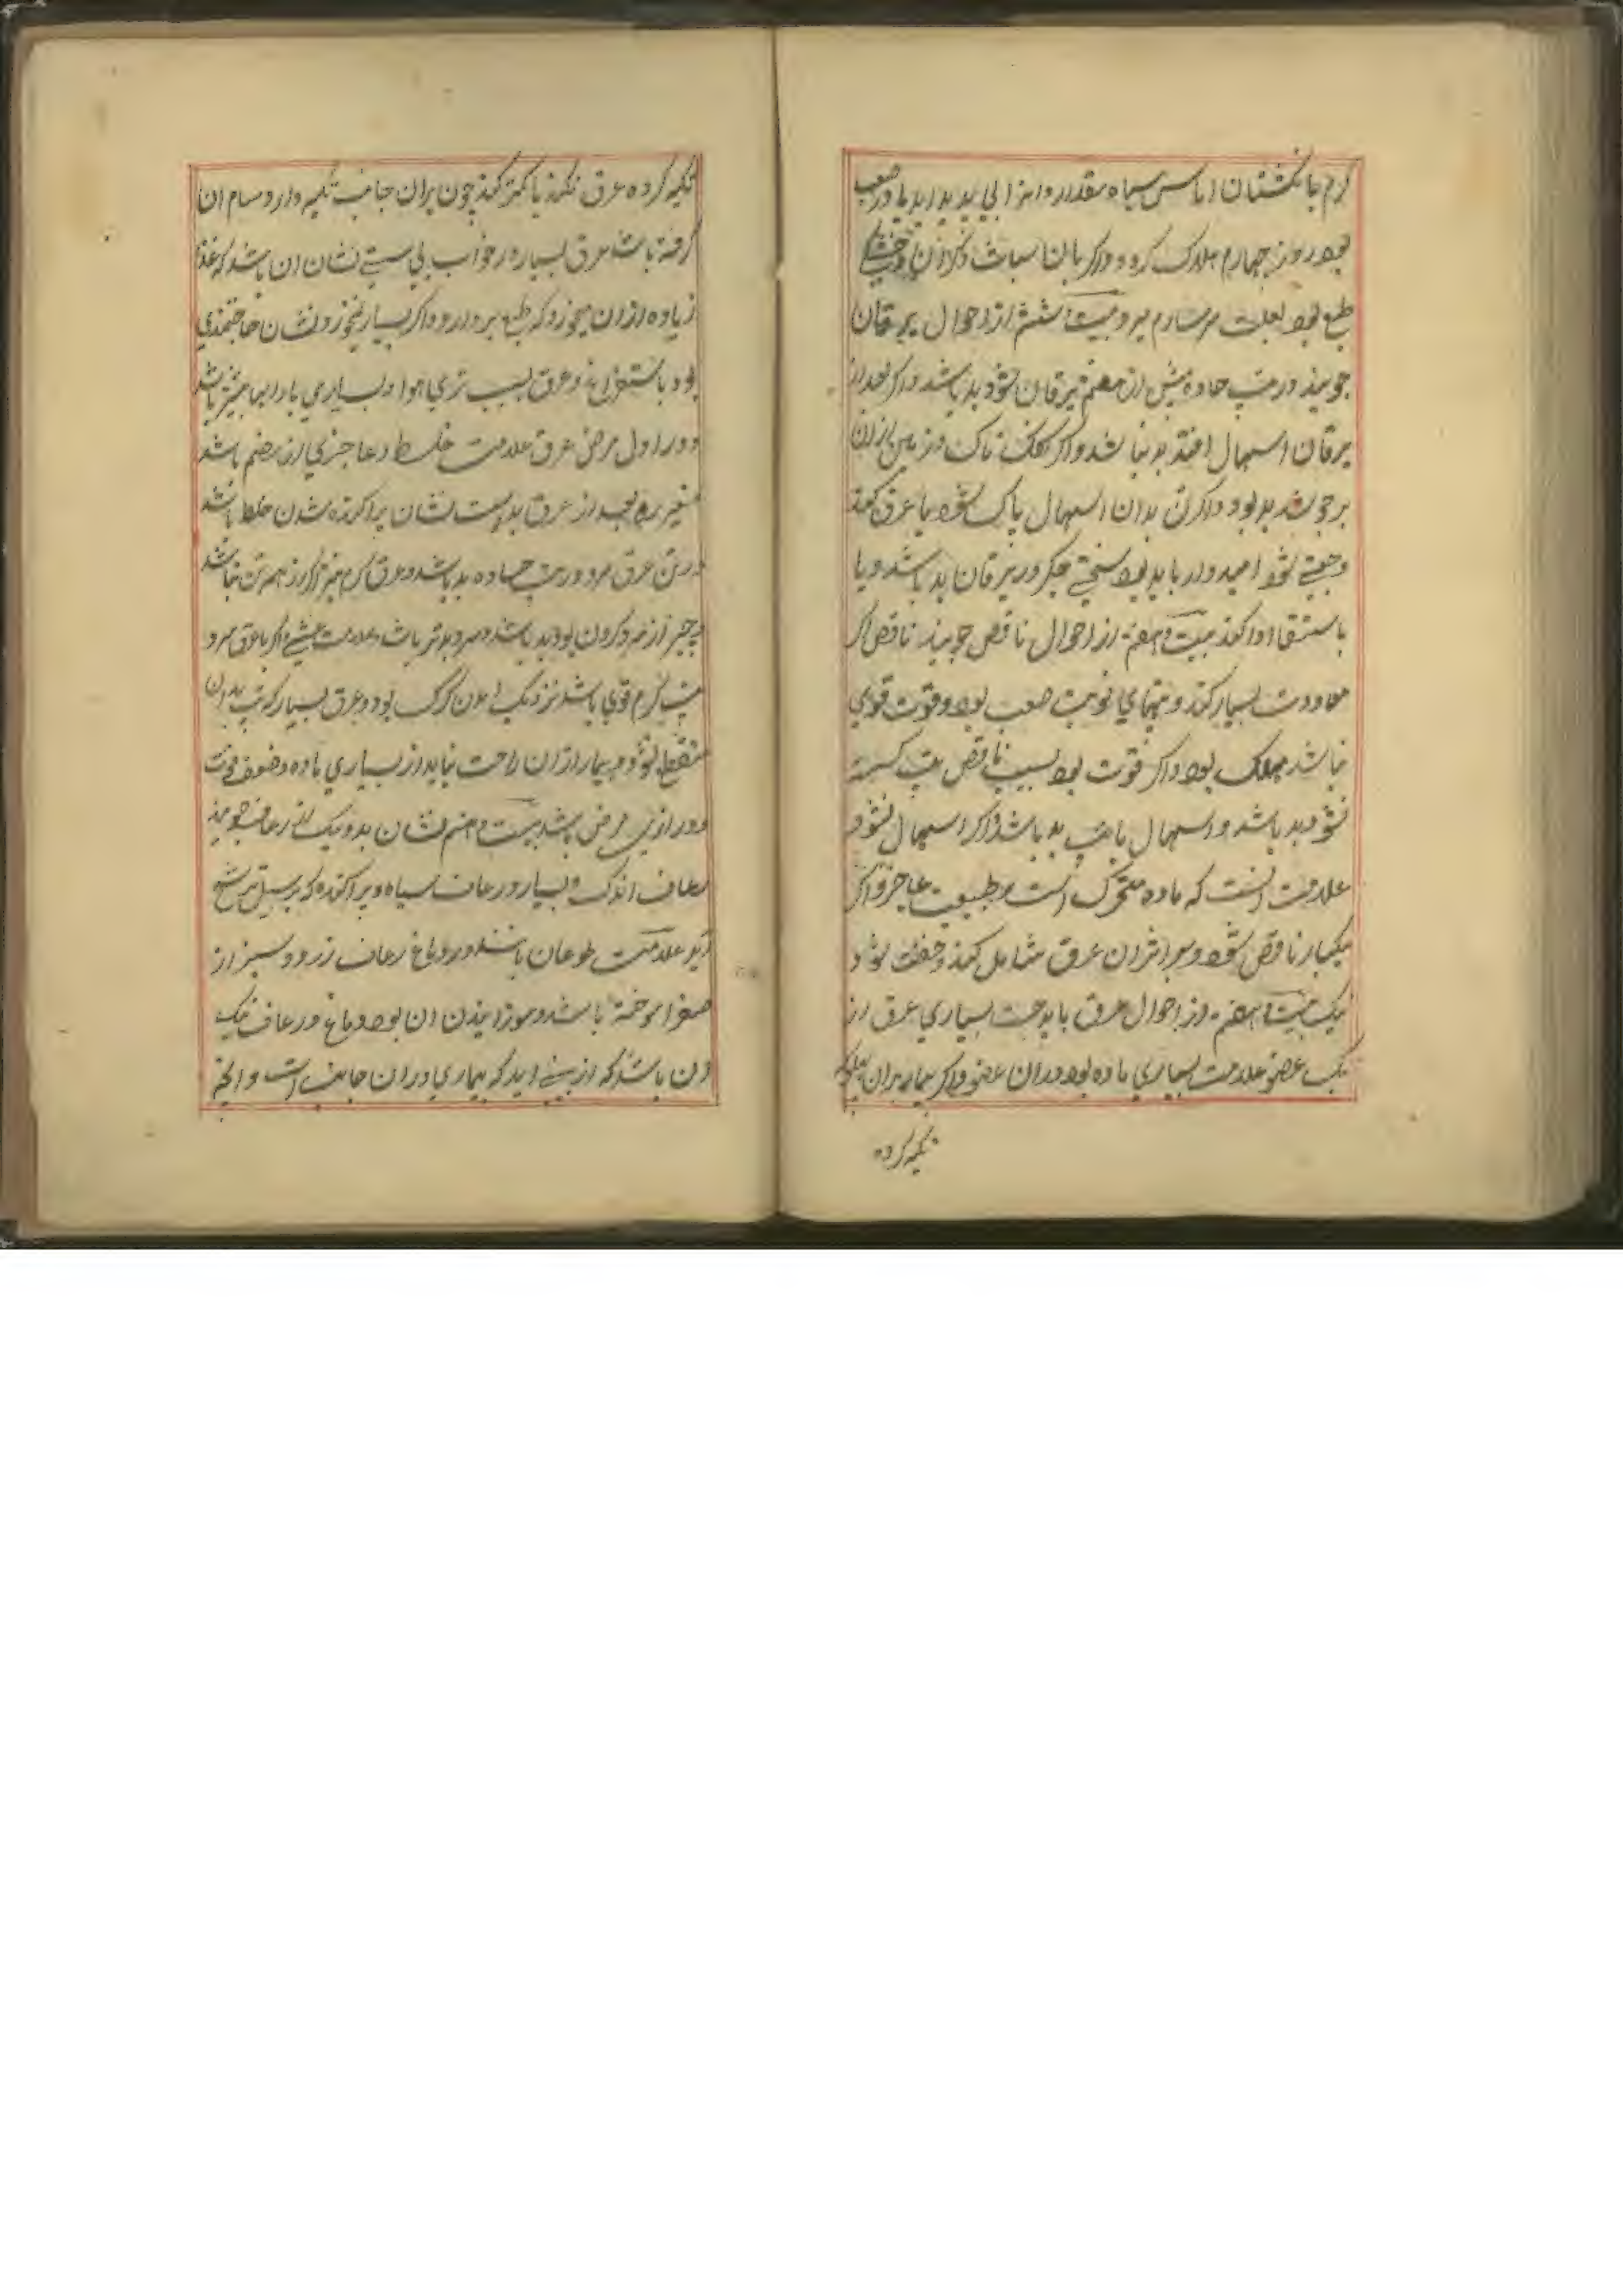 گرم با نکشتان اماس سیاه مقدار دانه ابی پدید اید یا درد صعب
بود روز چهارم هلاک کردد و اکر با ان سبات و کرانی و خشکی
طبع بود بعلت سرسام میرد بیست و ششم از احوال یرقان
جویند در تب حاده پیش از هفتم یرقان شود بد باشد و اکر بعد از
یرقان اسهال افتد بد نباشد و اکر کفک ناک زمین از ان
برجوشد بد بود و اکر تن بدان اسهال پاک شود یا عرق کند
وجعتی شود امیدوار باید بود سختی جکر در یرقان بد باشد و یا
باستسقا ادا کند بیست و هفتم از احوال ناقض جویند ناقض اکر
معاودت بسیار کند و تبهای نوبت صعب بود و قوت قوی
نباشد مهلک بود و اکر قوت بود بسبب ناقض تب کسسته
نشود بد باشد و اسهال با تب بد باشد و اکر اسهال نشود
علامت انست که ماده متحرک است و طبیعت عاجز و اکر
یکبار ناقض شود و بر اثر ان عرق شامل کند و خفت بود
نیک بیست و هفتم از احوال عرق باید جست بسیاری عرق از
یک عضو علامت بسیاری ماده بود در ان عضو و اکر بیمار بران پهلو که
تکیه کرده
تکیه کرده عرق نکند یا کمتر کند چون بران جانب تکیه دارد مسام ان
کرفته باشد عرق بسیار در خواب بی سستی نشان ان باشد که غذا
زیاده از ان میخورد که طبع بردارد و اکر بسیار نخورد نشان حاجتمندی
بود باستفراغ و عرق بسبب تری هوا و بسیاری بارانها بیشتر باشد
و در اول مرض عرق علامت خلط و عاجزی از هضم باشد
تغیر بعد از عرق بد است نشان پراکنده شدن خلط باشد
در تن عرق سرد در تب حاده بد باشد و عرق کرم نیز اکر از همه تن نباشد
و جز از سر و کردن نبود بد باشد و سرد بدتر باشد و علامت غشی و اکر با عرق سرد
تب کرم قوی باشد نزدیک امدن مرک بود و عرق بسیار که تب بدان
منقطع نشود و بیمار از ان راحت نیابد از بسیاری ماده و ضعف قوت
و درازی مرض باشد بیست و هشتم نشان بد و نیک از رعاف جویند
رعاف اندک و بسیار و رعاف سیاه و پراکنده که بر سبیل ترشح
اید علامت طوعان باشد در دماغ رعاف زرد و سبز از
صفرا سوخته باشد و سوزانیدن ان بود دماغ و رعاف نیک
ان باشد که از بینی اید که بیماری در ان جانب است و الخ